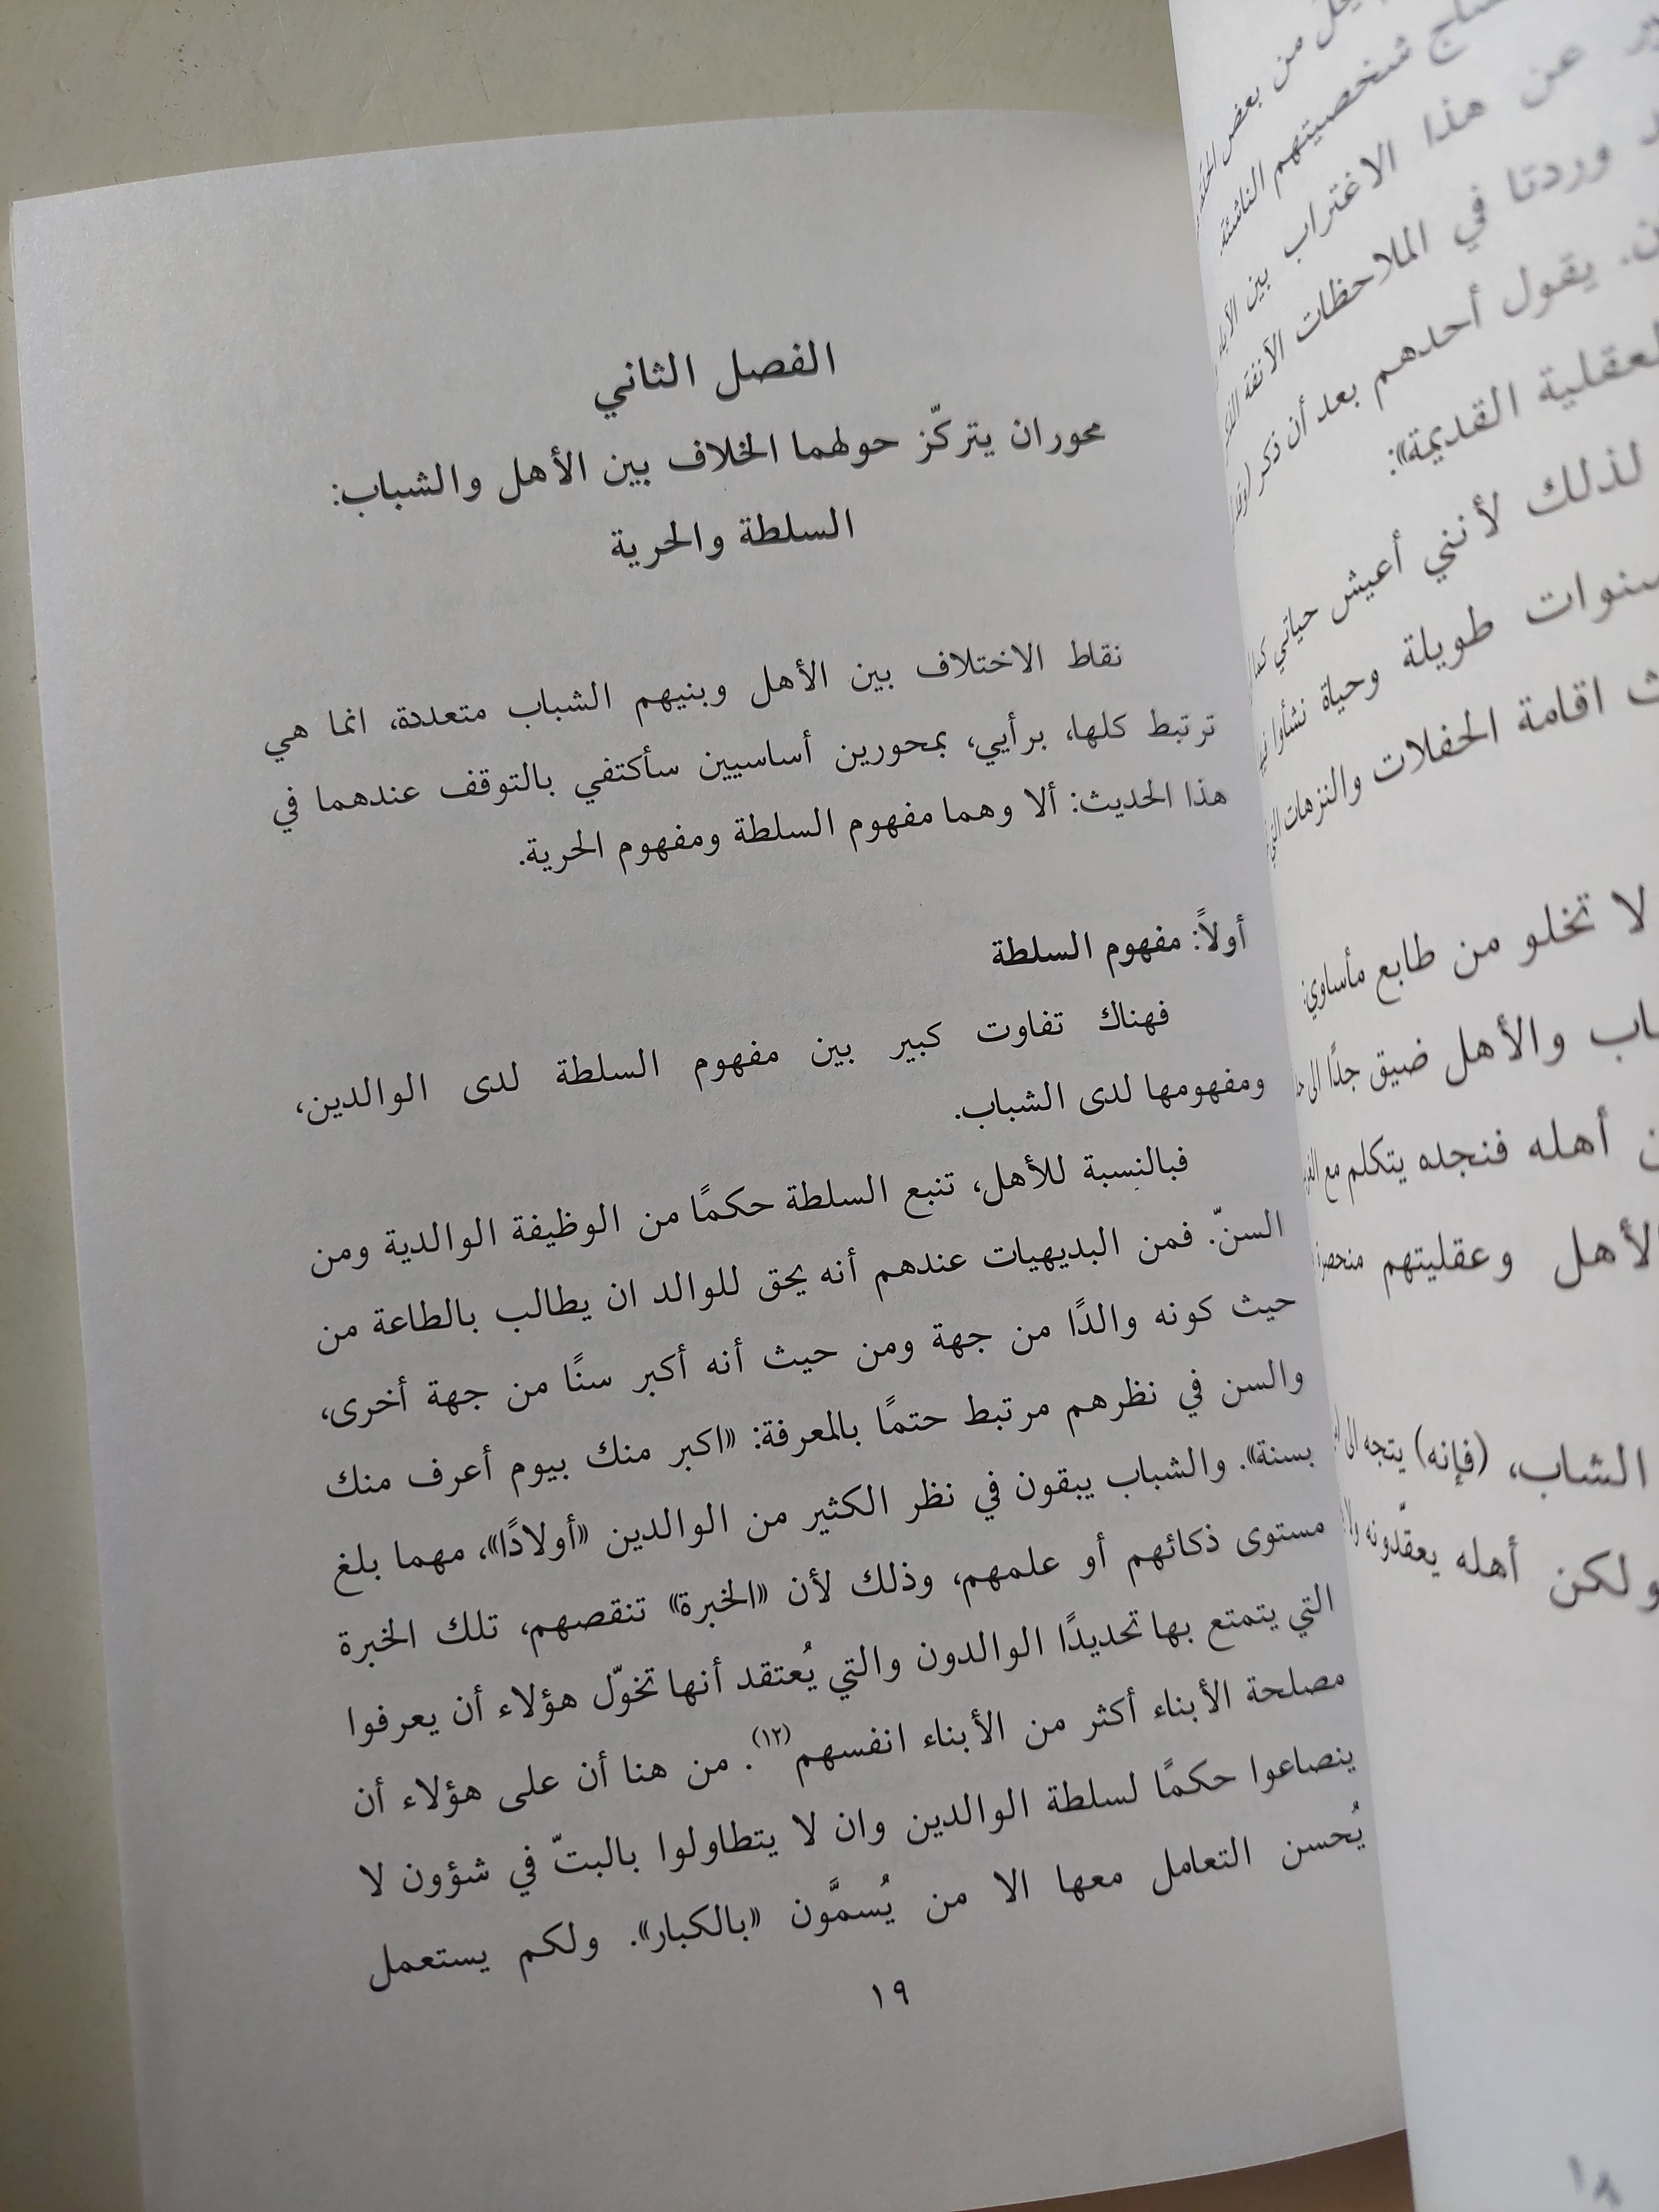 الفصل الثاني
محوران يتركّز حولهما الخلاف بين الأهل والشباب:
السلطة والحرية
نقاط الاختلاف بين الأهل وبنيهم الشباب متعددة، انما هي
ترتبط كلها، برأيي، بمحورين أساسيين سأكتفي بالتوقف عندهما في
هذا الحديث: ألا وهما مفهوم السلطة ومفهوم الحرية.
أولاً: مفهوم السلطة
فهناك تفاوت كبير بين مفهوم السلطة لدى الوالدين،
ومفهومها لدى الشباب.
فبالنسبة للأهل، تنبع السلطة حكمًا من الوظيفة الوالدية ومن
السنّ. فمن البديهيات عندهم أنه يحق للوالد ان يطالب بالطاعة من
حيث كونه والدًا من جهة ومن حيث أنه أكبر سنًا من جهة أخرى،
والسن في نظرهم مرتبط حتمًا بالمعرفة: «اكبر منك بيوم أعرف منك
بسنة». والشباب يبقون في نظر الكثير من الوالدين «أولادًا»، مهما بلغ
مستوى ذكائهم أو علمهم، وذلك لأن «الخبرة» تنقصهم، تلك الخبرة
التي يتمتع بها تحديدًا الوالدون والتي يُعتقد أنها تخوّل هؤلاء أن يعرفوا
مصلحة الأبناء أكثر من الأبناء انفسهم(١٢). من هنا أن على هؤلاء أن
ينصاعوا حكمًا لسلطة الوالدين وان لا يتطاولوا بالبتّ في شؤون لا
يُحسن التعامل معها الا من يُسمَّون «بالكبار». ولكم يستعمل
١٩
من بعض
شخصيتهم الناشئة
عن هذا الاغتراب بين
وردتا في الملاحظات الآنفة
يقول أحدهم بعد أن ذكر
العقلية القديمة»:
لذلك لأنني أعيش حياتي
سنوات طويلة وحياة نشأوا
اقامة الحفلات والنزهات
لا تخلو من طابع مأساوي:
والأهل ضيق جدًا الى
أهله فنجده يتكلم مع
الأهل وعقليتهم
الشاب، (فإنه) يتجه الى
ولكن أهله يعقّدونه
١٨